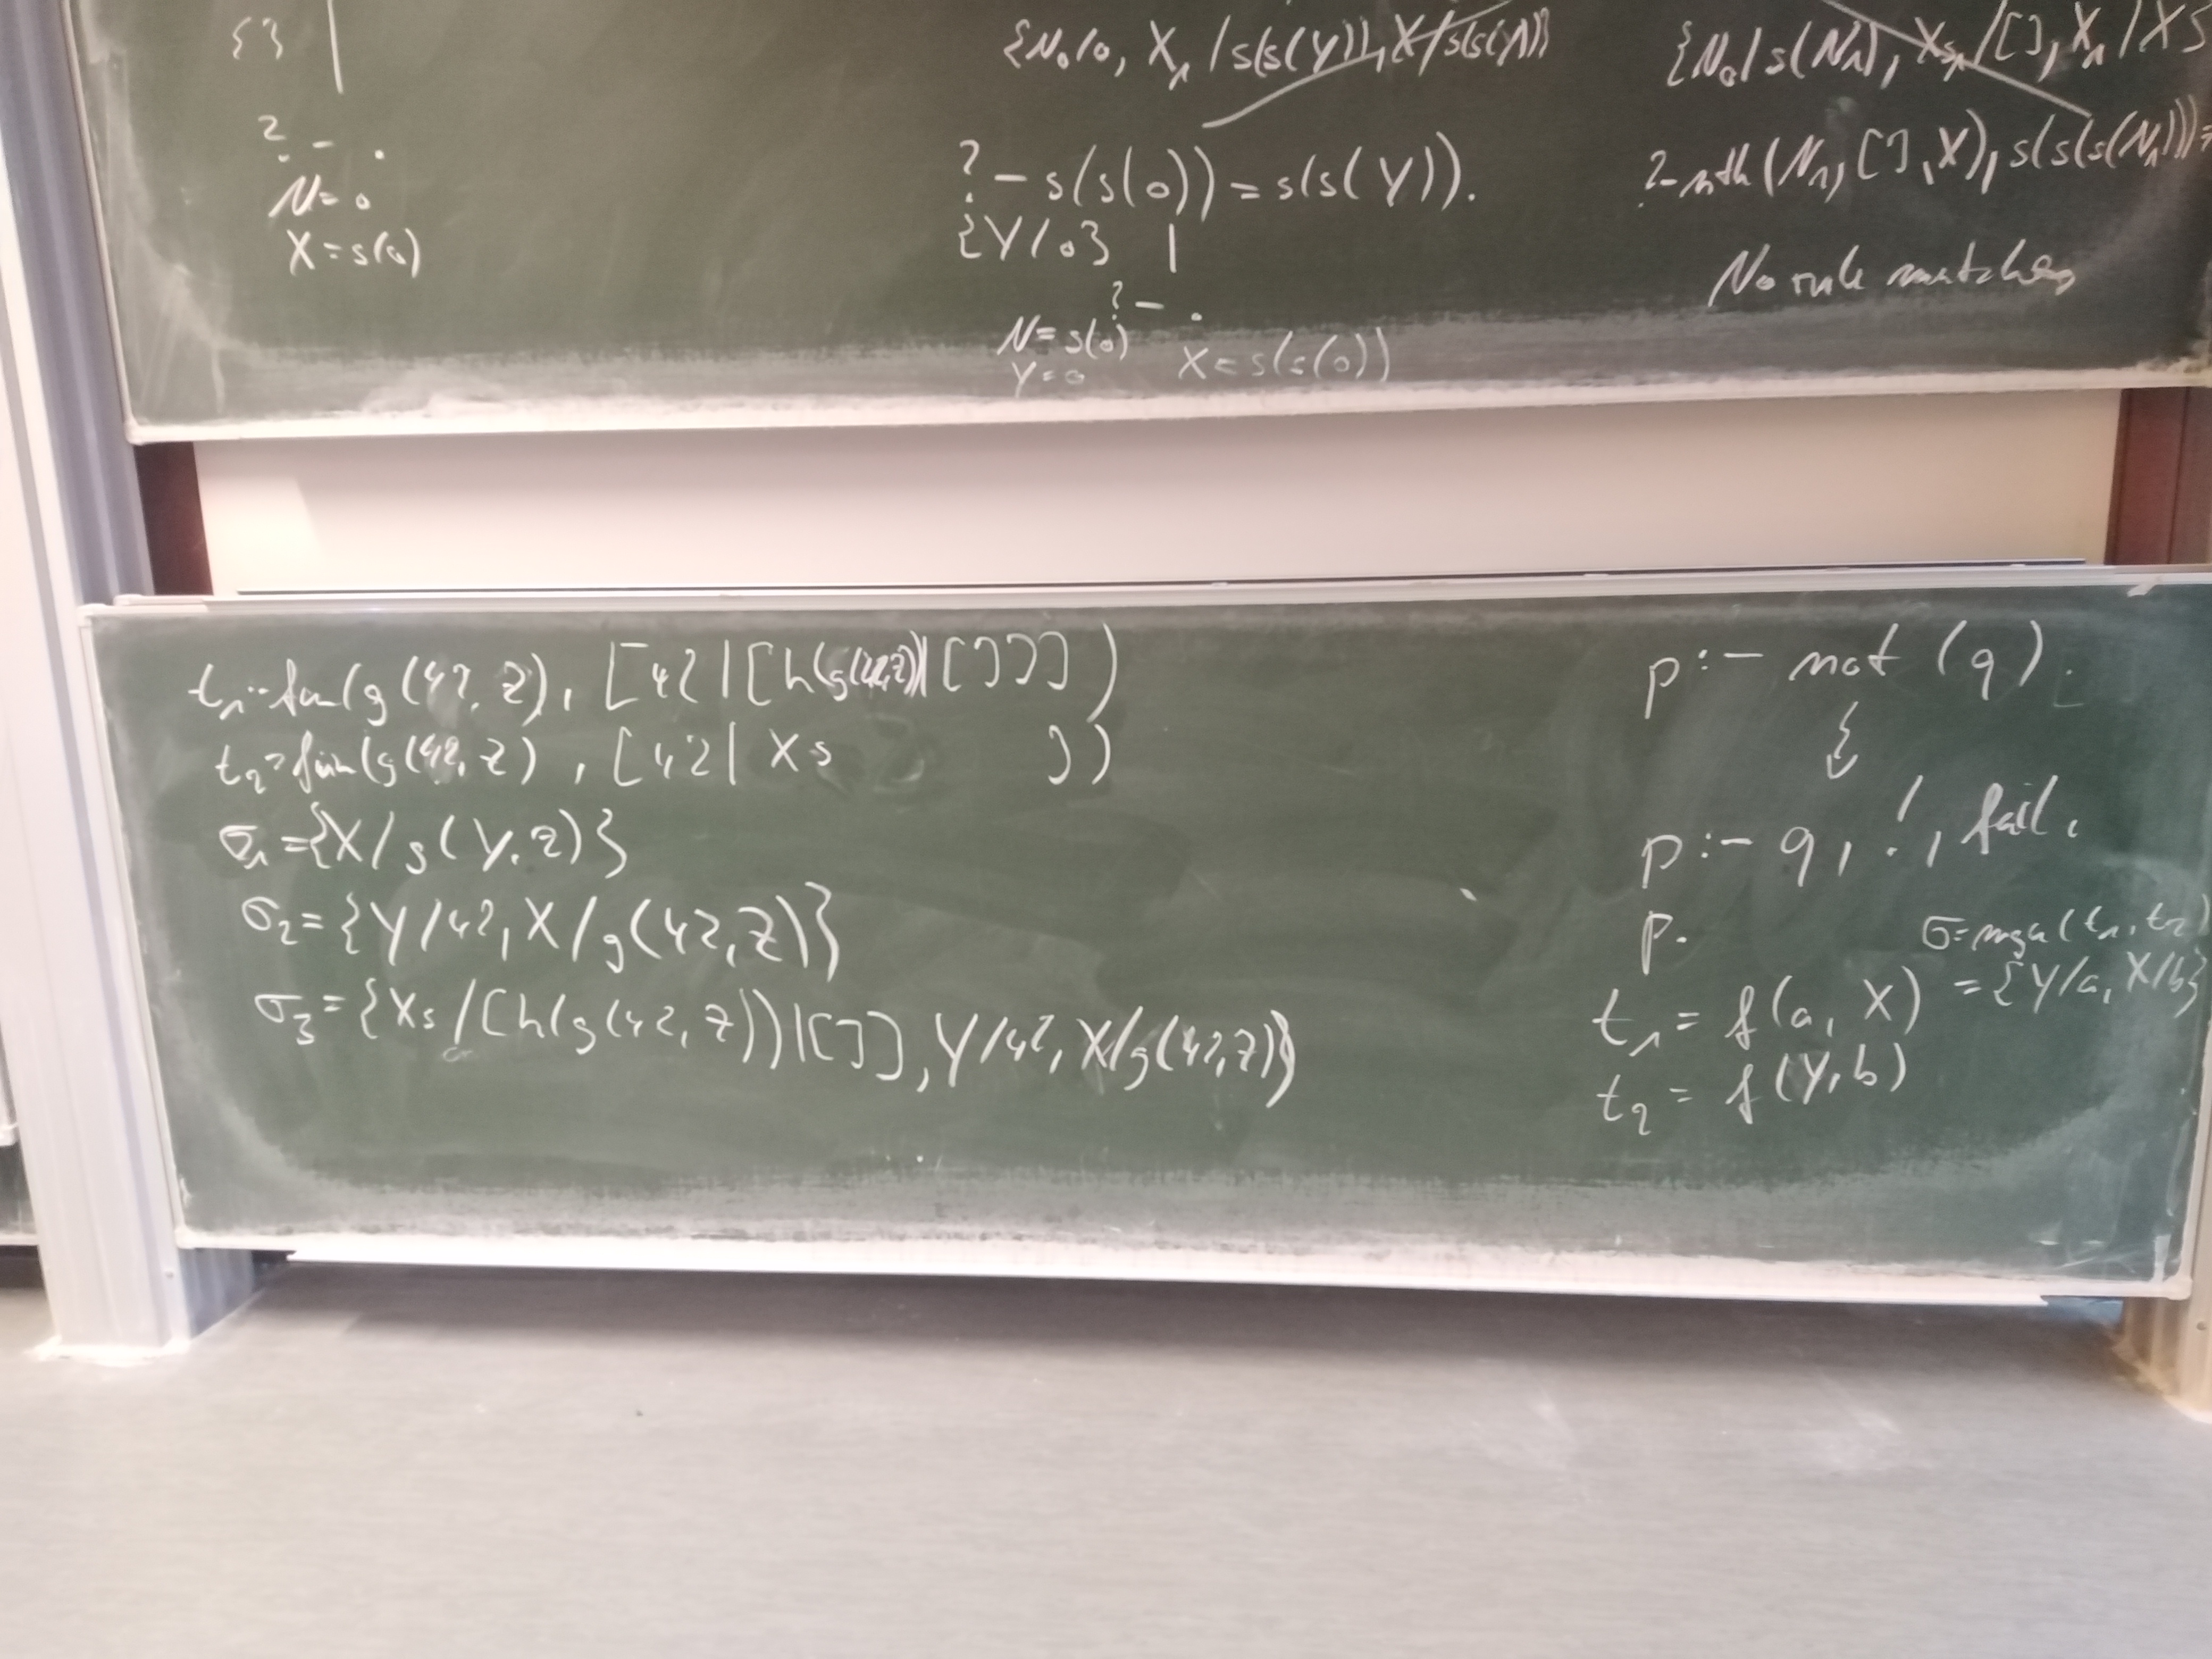 {}
?- .
N=0
X=s(0)
{N₀/0, X₁/s(s(Y)), X/s(s(Y))}
?- s(s(0)) = s(s(Y)).
{Y/0}
?- .
N=s(0)
Y=0 X=s(s(0))
{N₀/s(N₁), Xs₁/[], X₁/X}
?- nth(N₁,[],X), s(s(s(N₁)))=
No rule matches
t₁=fun(g(42,Z), [42|[h(g(42,Z))|[]]])
t₂=fun(g(42,Z), [42|Xs])
σ₁={X/g(Y,Z)}
σ₂={Y/42, X/g(42,Z)}
σ₃={Xs/[h(g(42,Z))|[]], Y/42, X/g(42,Z)}
p :- not (q).
p :- q, !, fail.
p.
σ=mgu(t₁,t₂)
={Y/a, X/b}
t₁ = f(a, X)
t₂ = f(Y,b)